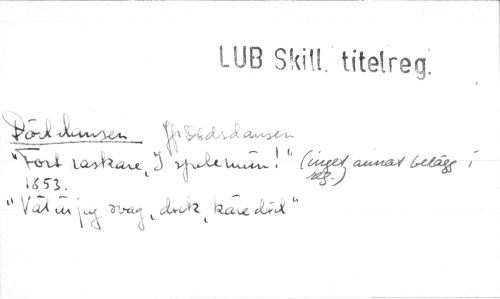 LUB Skill. titelreg.
Dödsdansen Jfr Dödsdansen
"Fort raskare, I spelemän!" (inget annat belägg i
1853. reg.)
"Väl är jag svag, dock, käre död"